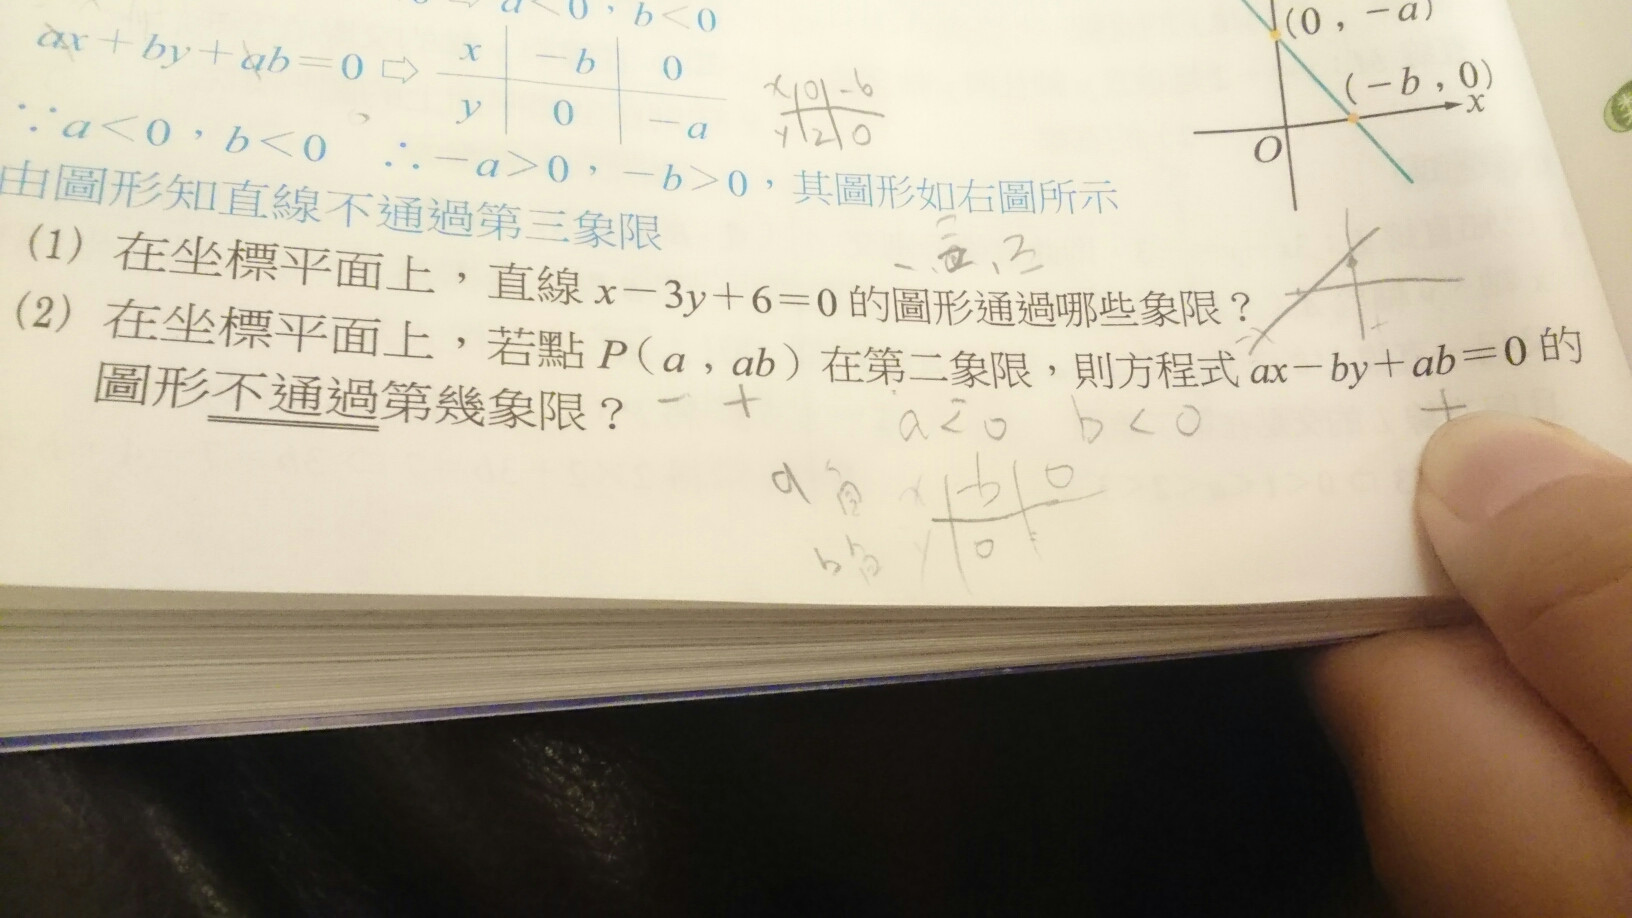 a<0，b<0
(0，-a)
ax+by+ab=0 ⇨
x -b 0
y 0 -a
x 0 -b
y 2 0
(-b，0)
x
O
∵a<0，b<0 ∴-a>0，-b>0，其圖形如右圖所示
由圖形知直線不通過第三象限
(1) 在坐標平面上，直線 x-3y+6=0 的圖形通過哪些象限？
(2) 在坐標平面上，若點 P(a，ab) 在第二象限，則方程式 ax-by+ab=0 的
圖形不通過第幾象限？
- +
a<0 b<0
+
a 負
b 負
x -b 0
y 0